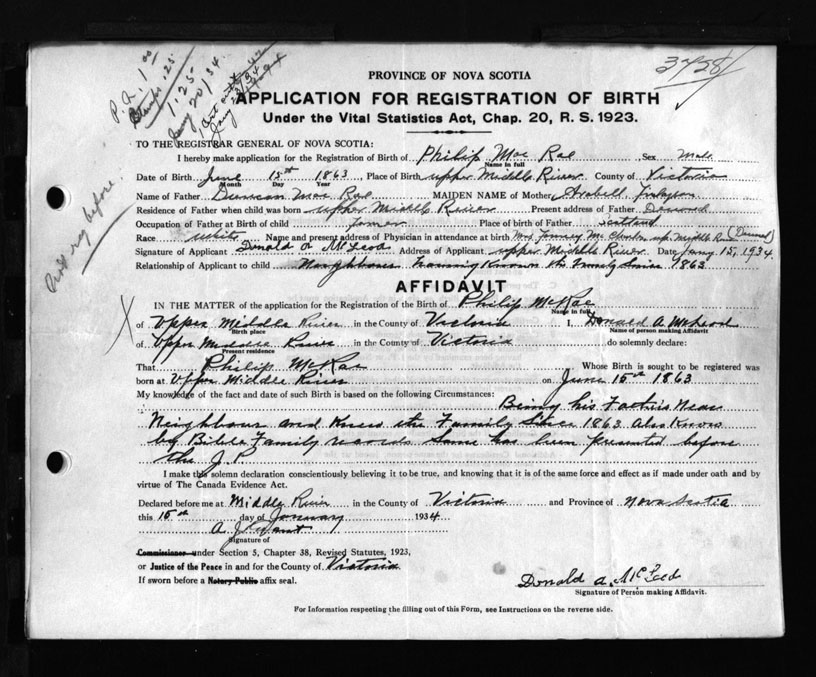 P. N. 1.00
Stamps .25
1.25
Jany 20/34
3728
PROVINCE OF NOVA SCOTIA
APPLICATION FOR REGISTRATION OF BIRTH
Under the Vital Statistics Act, Chap. 20, R. S. 1923.
TO THE REGISTRAR GENERAL OF NOVA SCOTIA:
I hereby make application for the Registration of Birth of Philip Mac Rae Sex Male
Name in full
Date of Birth June 15th 1863 Place of Birth upper Middle River County of Victoria
Month Day Year
Name of Father Duncan Mac Rae MAIDEN NAME of Mother Arabell
Residence of Father when child was born upper Middle River Present address of Father Deceased
Occupation of Father at Birth of child farmer Place of Birth of Father Scotland
Race white Name and present address of Physician in attendance at birth Mrs up Middle River (Deceased)
Signature of Applicant Donald A McLeod Address of Applicant upper Middle River Date Jany 15, 1934
Relationship of Applicant to child Neighbour having known the family since 1863
Prov reg before.
AFFIDAVIT
IN THE MATTER of the application for the Registration of the Birth of Philip McRae
Name in full
X of Upper Middle River in the County of Victoria I, Donald A McLeod
Birth place Name of person making Affidavit
of Upper Middle River in the County of Victoria do solemnly declare:
Present residence
That Philip McRae Whose Birth is sought to be registered was
born at Upper Middle River on June 15th 1863
My knowledge of the fact and date of such Birth is based on the following Circumstances:
Being his Father's Near
Neighbour and Knew the Family Since 1863 Also Know
by Bible Family records Same has been presented before
the J.P.
I make this solemn declaration conscientiously believing it to be true, and knowing that it is of the same force and effect as if made under oath and by
virtue of The Canada Evidence Act.
Declared before me at Middle River in the County of Victoria and Province of Nova Scotia
this 15th day of January 1934
A. J.
Signature of
Commissioner under Section 5, Chapter 38, Revised Statutes, 1923,
or Justice of the Peace in and for the County of Victoria
If sworn before a Notary Public affix seal.
Donald A. McLeod
Signature of Person making Affidavit.
For Information respecting the filling out of this Form, see Instructions on the reverse side.